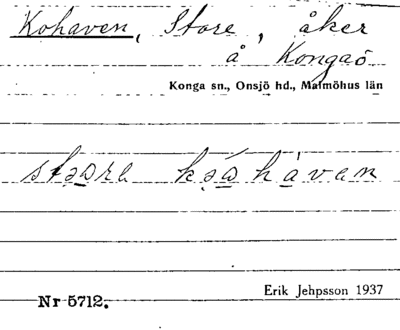 Kohaven, Store, åker
å Kongaö
Konga sn., Onsjö hd., Malmöhus län
Erik Jehpsson 1937
Nr 5712.